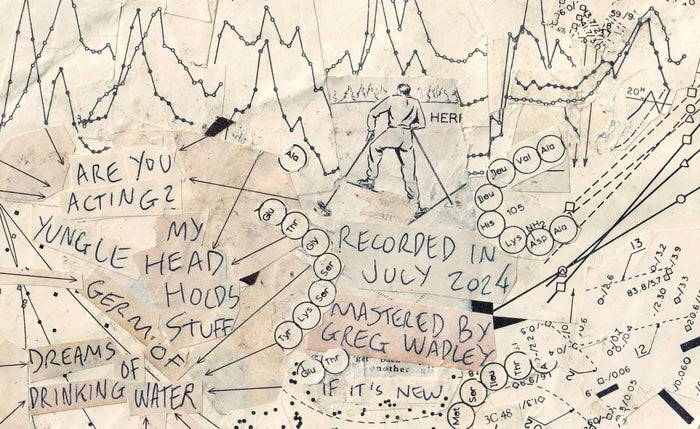 ARE YOU
ACTING?
YUNGLE
MY
HEAD
HOLDS
STUFF
GERM OF
DREAMS
OF
DRINKING WATER
HERE
RECORDED IN
JULY 2024
MASTERED BY
GREG WADLEY
IF IT'S NEW
another
Ala
Glu
Thr
Gly
Ser
Ser
Lys
Tyr
Glu
Thr
Leu
Val
Ala
Leu
His
105
Lys
NH2
Asp
Ala
Met
Ser
Thr
3C 48
20H
59/9
13
12